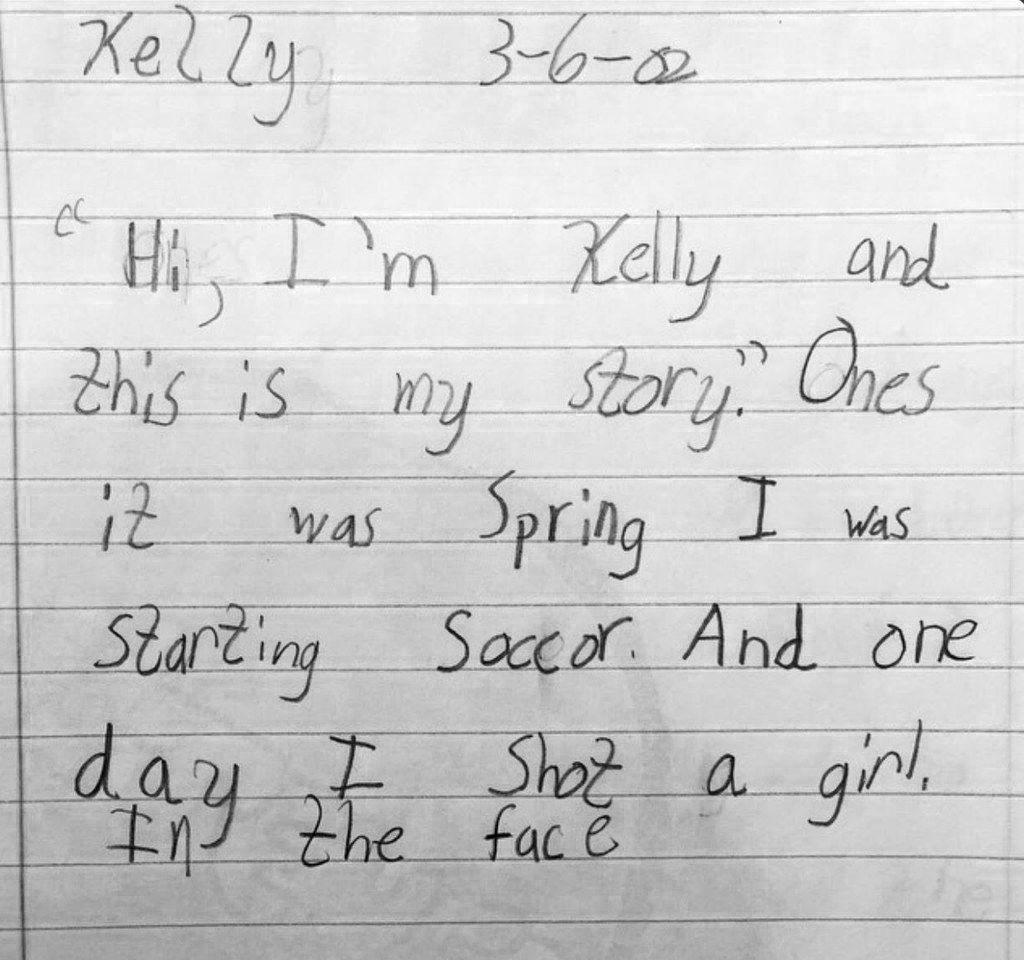 Kelly 3-6-02
"Hi, I'm Kelly and
this is my story." Ones
it was Spring I was
starting Soccor. And one
day I shot a girl.
In the face